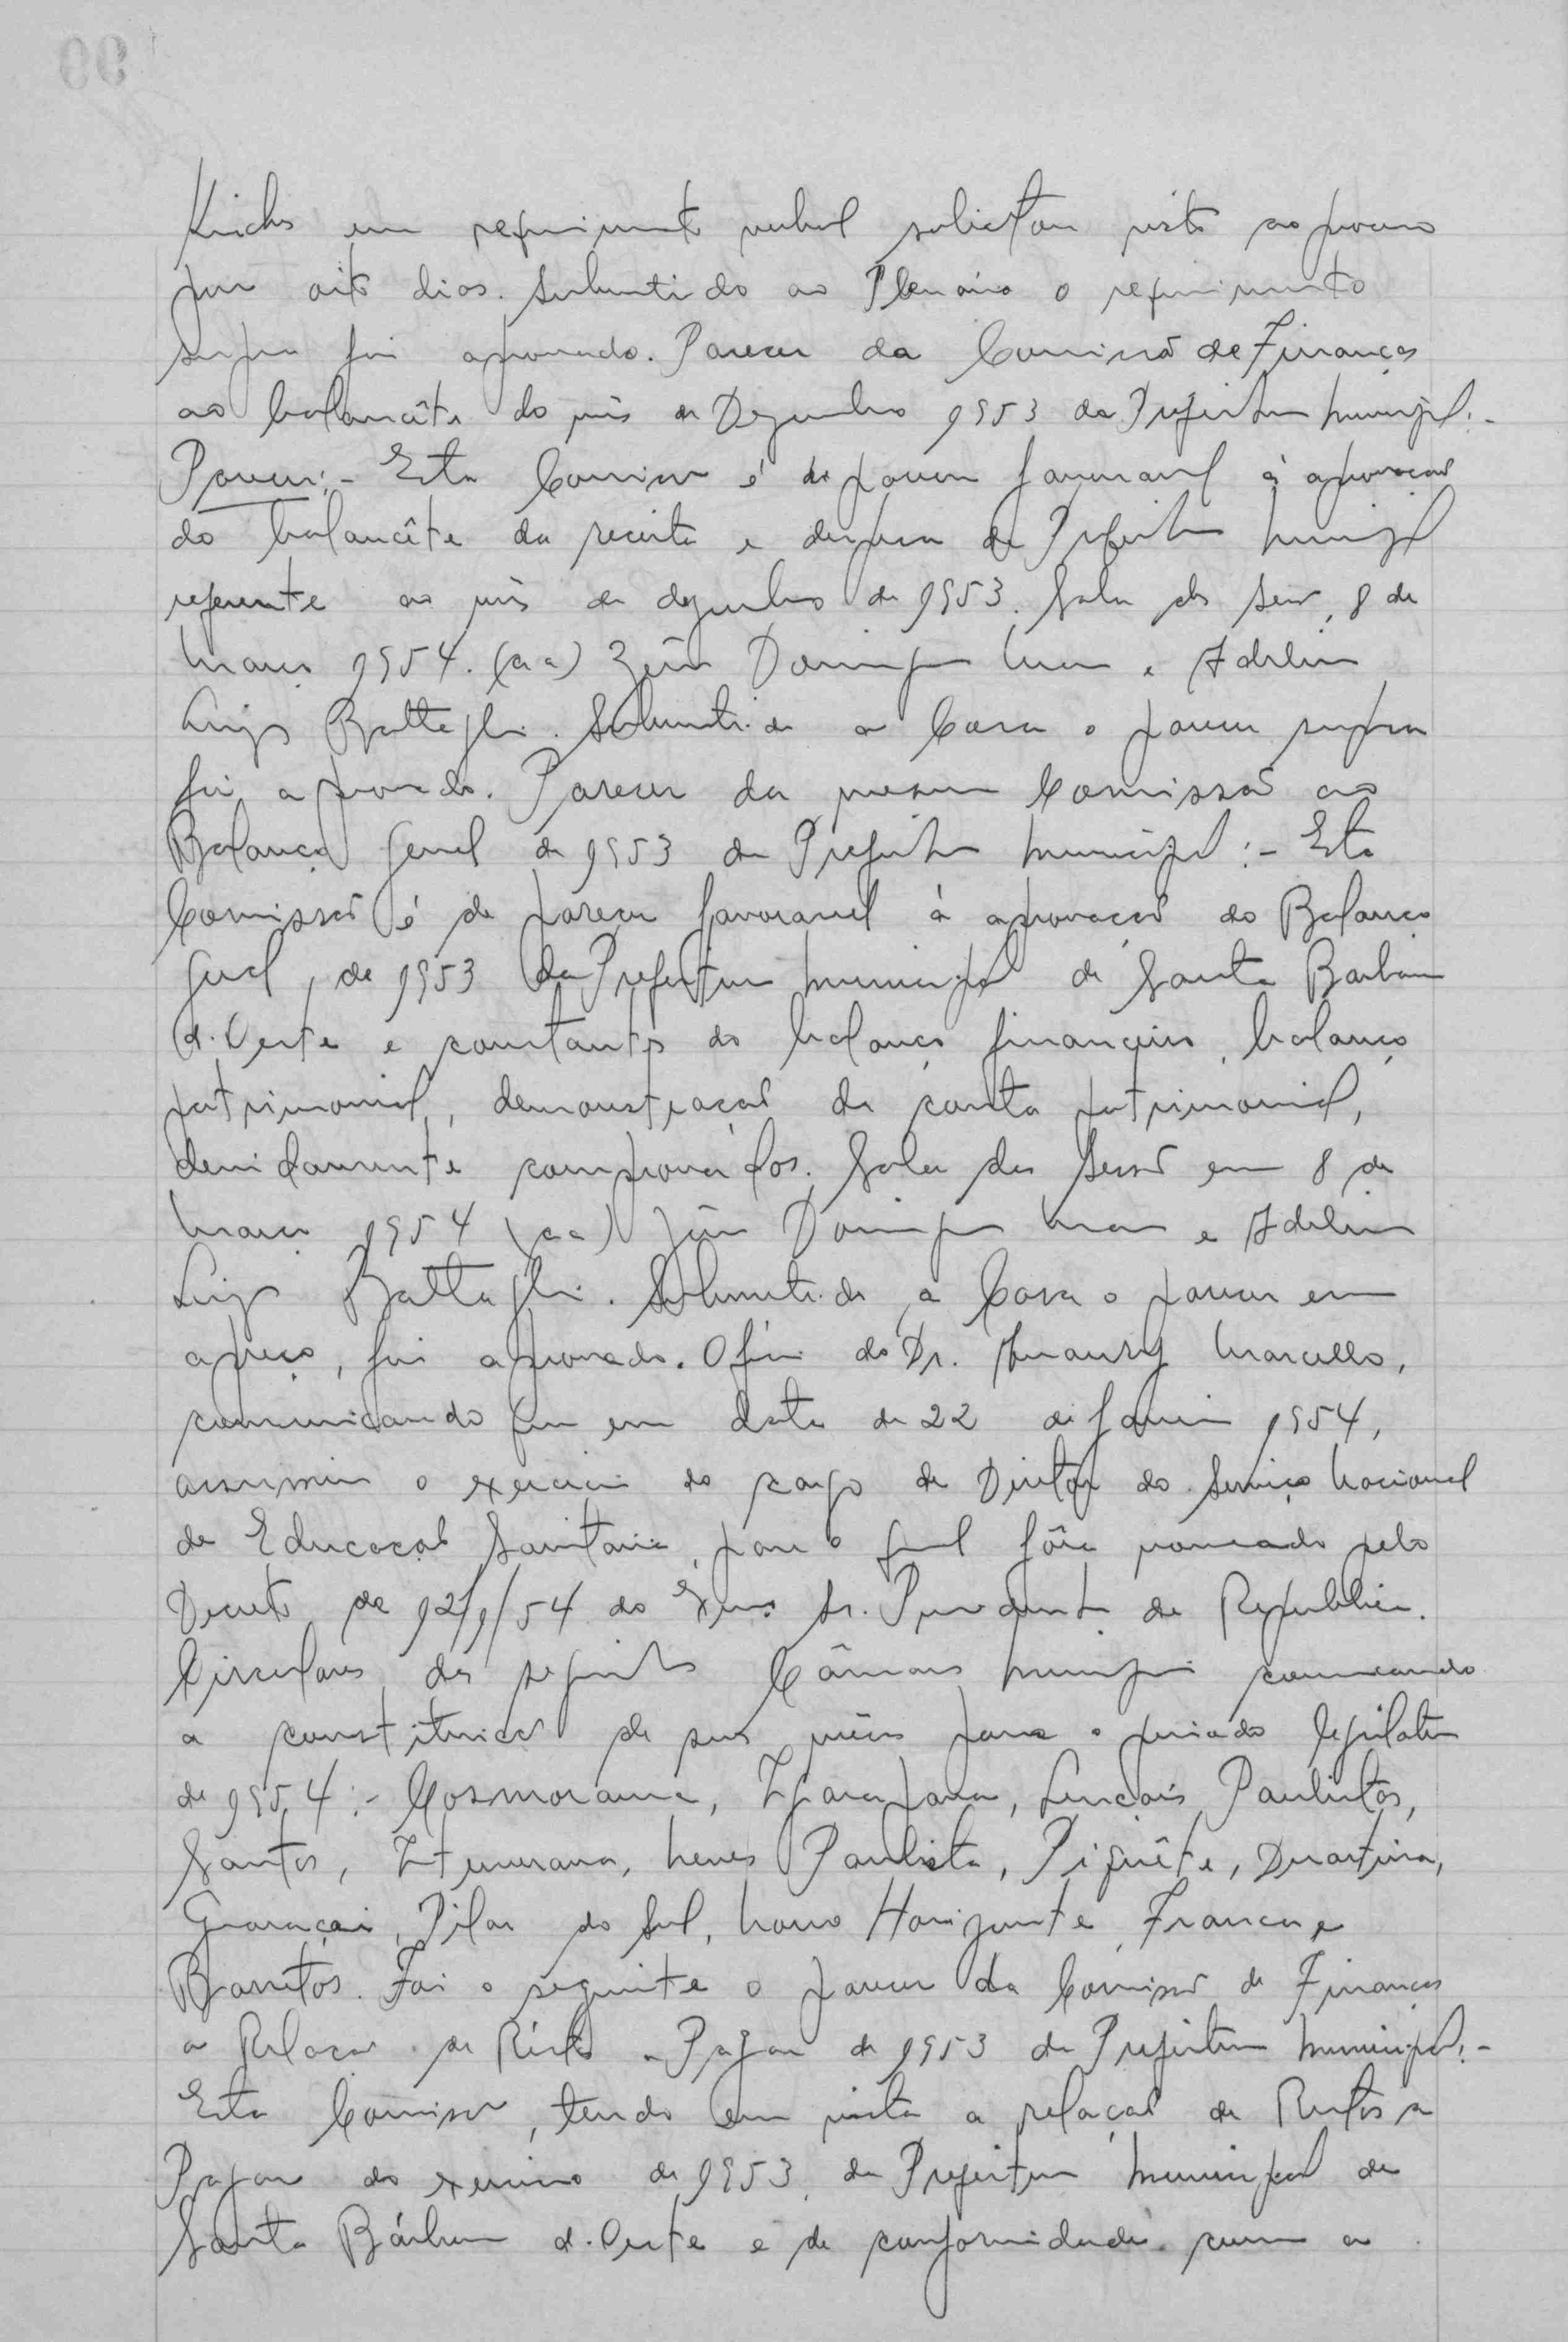 em requerimento verbal solicitou vista ao processo
por oito dias. Submetido ao Plenário o requerimento
supra foi aprovado. Parecer da Comissão de Finanças
ao balancête do mês de Dezembro 1953 da Prefeitura Municipal:-
Parecer:- Esta Comissão é de parecer favoravel à aprovação
do balancête da receita e despesa da Prefeitura Municipal
referente ao mês de dezembro de 1953. Sala das Sessões, 8 de
Março 1954. (aa) Domingos e Adelino
Luiz Battagli. Submetido a Casa o parecer supra
foi aprovado. Parecer da mesma Comissão ao
Balanço Geral de 1953 da Prefeitura Municipal:- Esta
Comissão é de parecer favoravel à aprovação do Balanço
Geral, de 1953 da Prefeitura Municipal de Santa Barbara
d'Oeste e constantes do balanço financeiro, balanço
patrimonial, demonstração da conta patrimonial,
devidamente comprovados. Sala das Sessões em 8 de
Março 1954 (aa) Domingos e Adelino
Luiz Battagli. Submetido a Casa o parecer em
apreço, foi aprovado. Ofício do Dr. Amaury Marcello,
comunicando que em data de 22 de janeiro 1954,
assumiu o exercicio do cargo de Diretor do Serviço Nacional
de Educação Sanitaria, para o qual fôra nomeado pelo
Decreto de 12/1/54 do Exmo Sr. Presidente da Republica.
Circulares das seguintes Câmaras Municipais comunicando
a constituição de suas mêsas para o periodo legislativo
de 1954:- Cosmorama, Igarapava, Lençóis Paulistas,
Santos, Itanuera, Neves Paulista, Piquête, Duartina,
Guaraçai, Pilar do Sul, Novo Horizonte, Franca e
Barretos. Foi o seguinte o parecer da Comissão de Finanças
a Relação de Restos a Pagar de 1953 da Prefeitura Municipal:-
Esta Comissão, tendo em vista a relação de Restos a
Pagar do exercicio de 1953, da Prefeitura Municipal de
Santa Bárbara d'Oeste e de conformidade com a